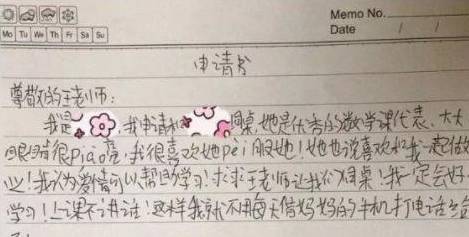 Memo No.
Mo Tu We Th Fr Sa Su
Date / /
申请书
尊敬的王老师：
我是，我申请和同桌，她是优秀的数学课代表、大大
眼睛很piao亮！我很喜欢她pei服她！她也说喜欢和我一起做
业！我认为爱情可以帮助学习！求求王老师让我们同桌！我一定会好
学习！上课不讲话！这样我就不用每天借妈妈的手机打电话给